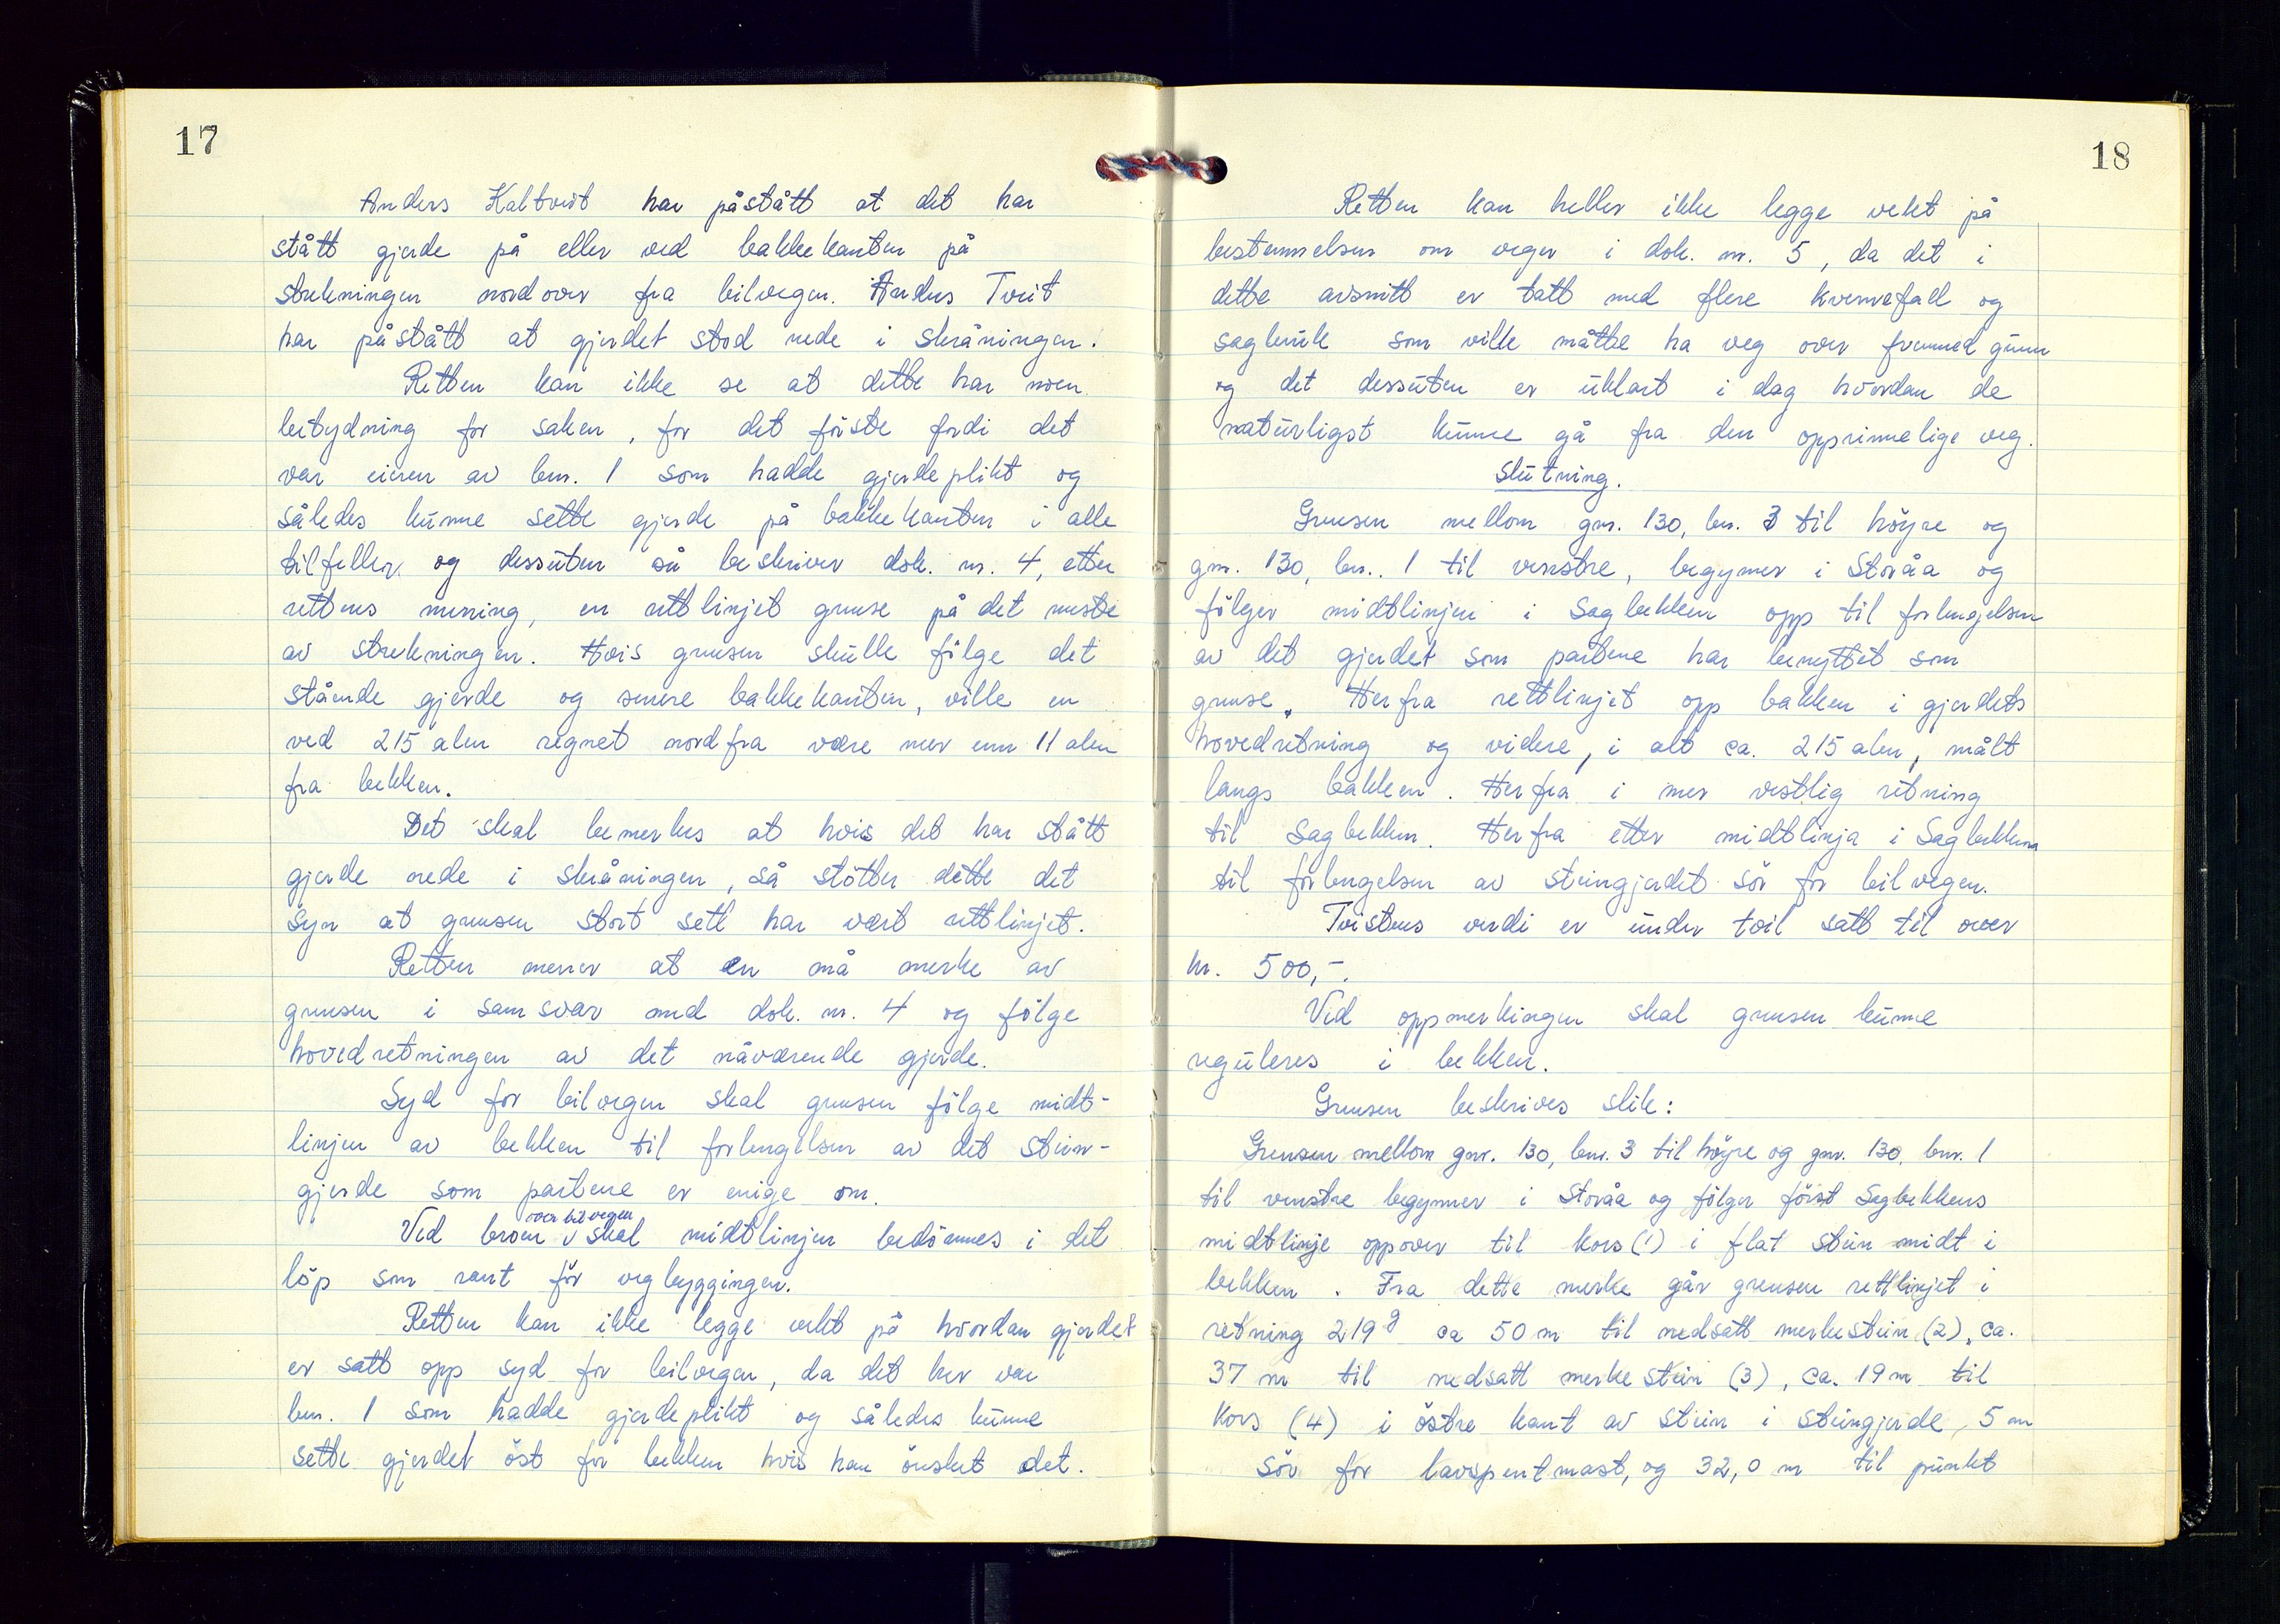 17
Anders Kaltveit har påstått at det har
stått gjerde på eller ved bakkekanten på
strekningen nordover fra bilvegen. Anders Tveit
har påstått at gjerdet stod nede i skråningen.
Retten kan ikke se at dette har noen
betydning for saken, for det første fordi det
var eieren av bnr. 1 som hadde gjerdeplikt og
således kunne sette gjerde på bakkekanten i alle
tilfeller og dessuten så beskriver dok. nr. 4, etter
rettens mening, en rettlinjet grense på det meste
av strekningen. Hvis grensen skulle følge det
stående gjerde og senere bakkekanten, ville en
ved 215 alen regnet nordfra være mer enn 11 alen
fra bekken.
Det skal bemerkes at hvis det har stått
gjerde nede i skråningen, så støtter dette det
syn at grensen stort sett har vært rettlinjet.
Retten mener at en må merke av
grensen i samsvar med dok. nr. 4 og følge
hovedretningen av det nåværende gjerde.
Syd for bilvegen skal grensen følge midt-
linjen av bekken til forlengelsen av det stein-
gjerde som partene er enige om.
Ved broen over bilvegen skal midtlinjen bedömmes i det
löp som rant för vegbyggingen.
Retten kan ikke legge vekt på hvordan gjerdet
er satt opp syd for bilvegen, da det her var
bnr. 1 som hadde gjerdeplikt og således kunne
sette gjerdet öst for bekken hvis han önsket det.
18
Retten kan heller ikke legge vekt på
bestemmelsen om veger i dok. nr. 5, da det i
dette avsnitt er tatt med flere kvernefall og
sagbruk som ville måtte ha veg over fremmed grunn
og det dessuten er uklart i dag hvordan de
naturligst kunne gå fra den opprinnelige veg.
Slutning.
Grensen mellom gnr. 130, bnr. 3 til höyre og
gnr. 130, bnr. 1 til venstre, begynner i Storåa og
fölger midtlinjen i Sagbekken opp til forlengelsen
av det gjerdet som partene har benyttet som
grense. Herfra rettlinjet opp bakken i gjerdets
hovedretning og videre, i alt ca. 215 alen, målt
langs bakken. Herfra i mer vestlig retning
til Sagbekken. Herfra etter midtlinja i Sagbekken
til forlengelsen av steingjerdet sör for bilvegen.
Tvistens verdi er under tvil satt til over
kr. 500,-.
Ved oppmerkingen skal grensen kunne
reguleres i bekken.
Grensen beskrives slik:
Grensen mellom gnr. 130, bnr. 3 til höyre og gnr. 130, bnr. 1
til venstre begynner i Storåa og fölger först Sagbekkens
midtlinje oppover til kors (1) i flat stein midt i
bekken. Fra dette merke går grensen rettlinjet i
retning 219g ca 50 m til nedsatt merkestein (2), ca.
37 m til nedsatt merkestein (3), ca. 19 m til
kors (4) i östre kant av stein i steingjerde, 5 m
sör for lavspentmast, og 32,0 m til punkt